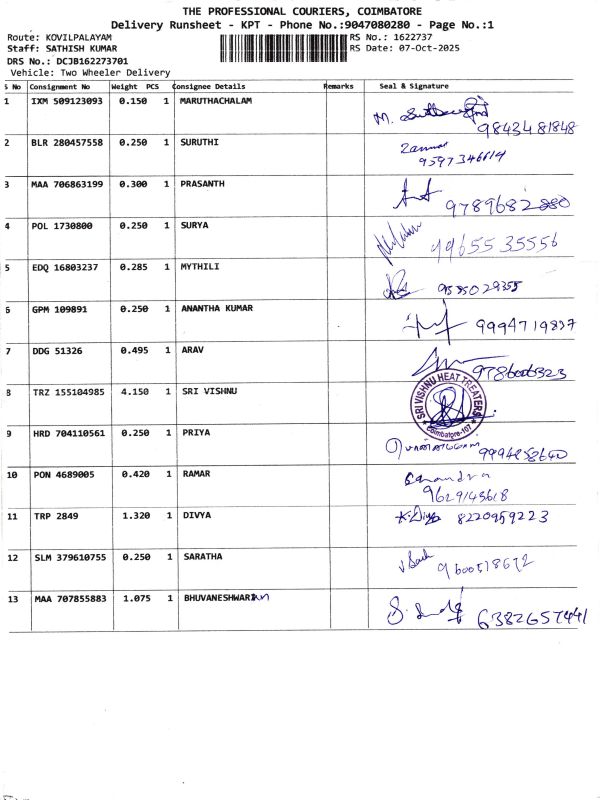 THE PROFESSIONAL COURIERS, COIMBATORE
Delivery Runsheet - KPT - Phone No.:9047080280 - Page No.:1
Route: KOVILPALAYAM RS No.: 1622737
Staff: SATHISH KUMAR RS Date: 07-Oct-2025
DRS No.: DCJB162273701
Vehicle: Two Wheeler Delivery
S No Consignment No Weight PCS Consignee Details Remarks Seal & Signature
1 IXM 509123093 0.150 1 MARUTHACHALAM M.
9843481848
2 BLR 280457558 0.250 1 SURUTHI
9597346614
3 MAA 706863199 0.300 1 PRASANTH
4 POL 1730800 0.250 1 SURYA 9965535556
5 EDQ 16803237 0.285 1 MYTHILI 9585029355
6 GPM 109891 0.250 1 ANANTHA KUMAR 9994719837
7 DDG 51326 0.495 1 ARAV
8 TRZ 155104985 4.150 1 SRI VISHNU SRI VISHNU HEAT TREATERS
Coimbatore-107
9 HRD 704110561 0.250 1 PRIYA
10 PON 4689005 0.420 1 RAMAR
9629145618
11 TRP 2849 1.320 1 DIVYA K.Divya 8220959223
12 SLM 379610755 0.250 1 SARATHA 9600518672
13 MAA 707855883 1.075 1 BHUVANESHWARI S.
6382657441